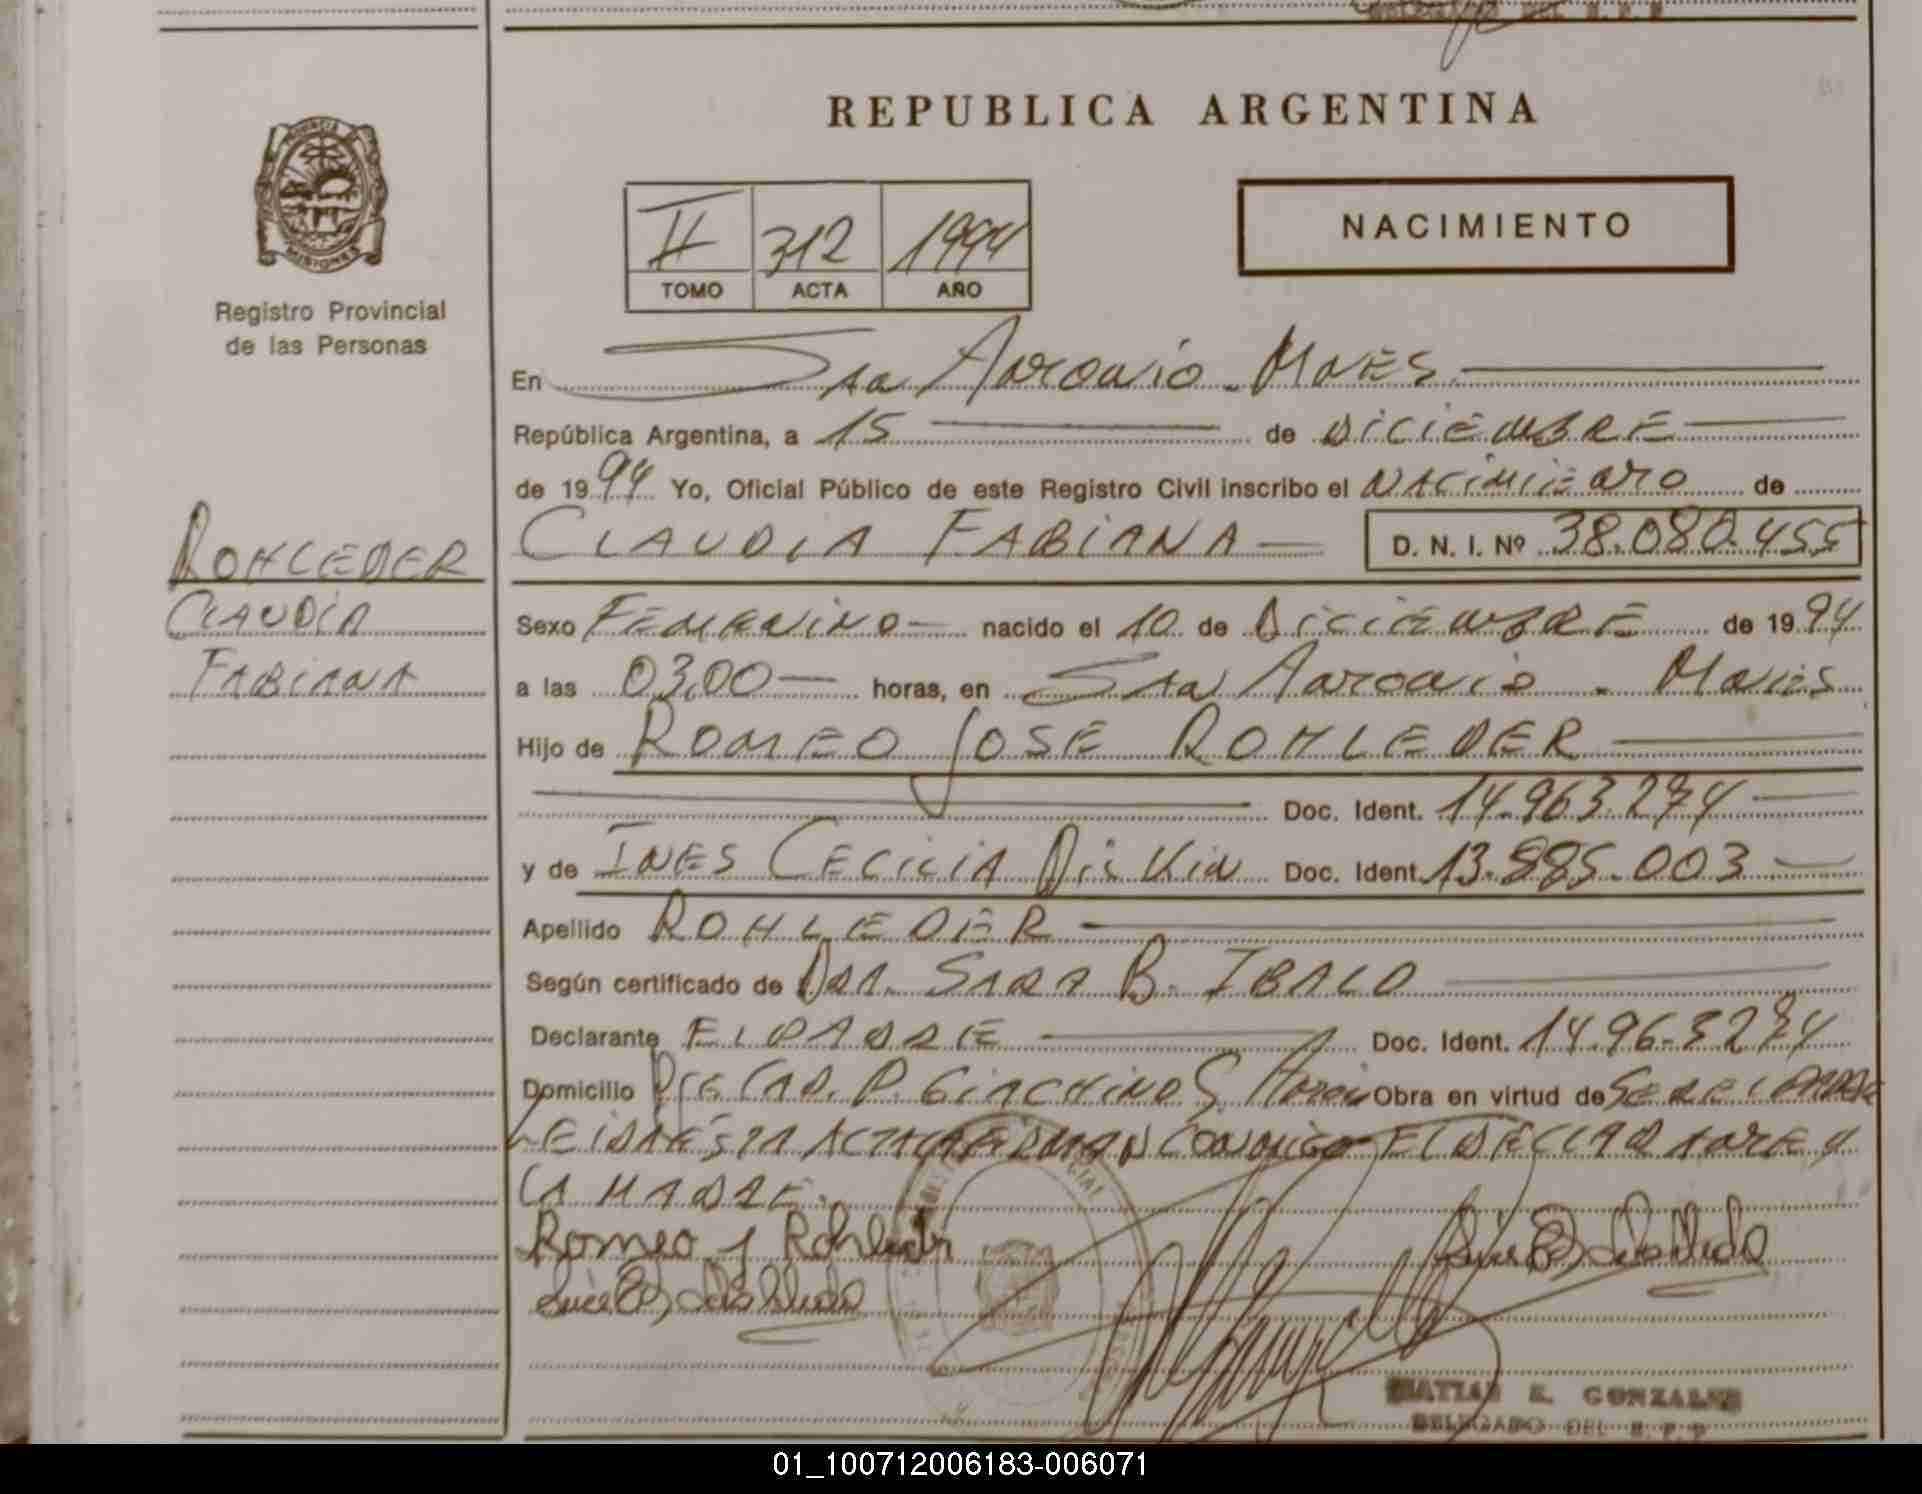 REPUBLICA ARGENTINA
NACIMIENTO
II 312 1994
TOMO ACTA AÑO
PROVINCIA DE MISIONES
Registro Provincial
de las Personas
En San Antonio - Mnes
República Argentina, a 15 de DICIEMBRE
de 1994 Yo, Oficial Público de este Registro Civil inscribo el NACIMIENTO de
CLAUDIA FABIANA D. N. I. Nº 38.080.455
ROHLEDER
CLAUDIA
FABIANA
Sexo FEMENINO nacido el 10 de DICIEMBRE de 1994
a las 03,00 horas, en San Antonio - Mnes
Hijo de ROMEO JOSE ROHLEDER
Doc. Ident. 14.963.274
y de INES CECILIA Doc. Ident. 13.885.003
Apellido ROHLEDER
Según certificado de DRA. SARA B. IBALO
Declarante EL PADRE Doc. Ident. 14.963274
Domicilio Pje CAP. P. GIACHINO S. Obra en virtud de SER EL PADRE
LEIDA ESTA ACTA LA FIRMAN CONMIGO EL DECLARANTE Y
LA MADRE.
Romeo J Rohleder
MATIAS E. GONZALEZ
DELEGADO DEL R. P. P
01_100712006183-006071